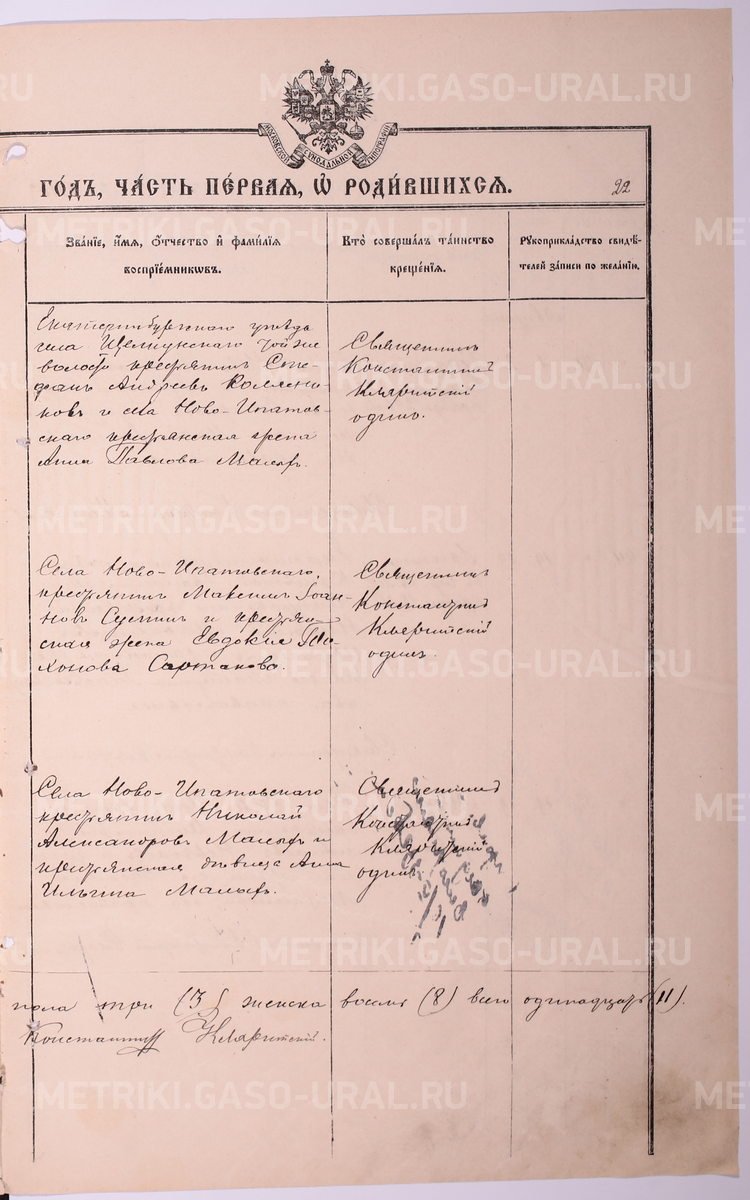 МОСКОВСКОЙ СѴНОДАЛЬНОЙ ТИПОГРАФІИ
ГО́ДЪ, ЧА́СТЬ ПЕ́РВАЯ, Ѡ҆ РОДИ́ВШИХСЯ.
22
Зва́ніе, и҆́мя, ѻ҆́тчество и҆ фами́лїя
воспрїе́мникѡвъ.
Кто̀ соверша́лъ та́инство
креще́нїя.
Рукоприкла́дство свидѣ́-
телей за́писи по жела́нїю.
Екатеринбургскаго уѣзда
села Щелкунскаго той же
волости крестьянинъ Сте-
фанъ Андреевъ
ковъ и села Ново-Ипатов-
скаго крестьянская жена
Анна Павлова Малыхъ.
Священникъ
Константинъ
одинъ.
Села Ново-Ипатовскаго,
крестьянинъ Максимъ Іоан-
новъ и крестьян-
ская жена Евдокія Ти-
хонова Сартакова.
Священникъ
Константинъ
одинъ.
Села Ново-Ипатовскаго
крестьянинъ Николай
Александровъ Малыхъ и
крестьянская дѣвица Анна
Ильина Малыхъ.
Священникъ
Константинъ
одинъ.
пола три (3) женска восемь (8) всего одинадцать (11).
Константинъ
METRIKI.GASO-URAL.RU